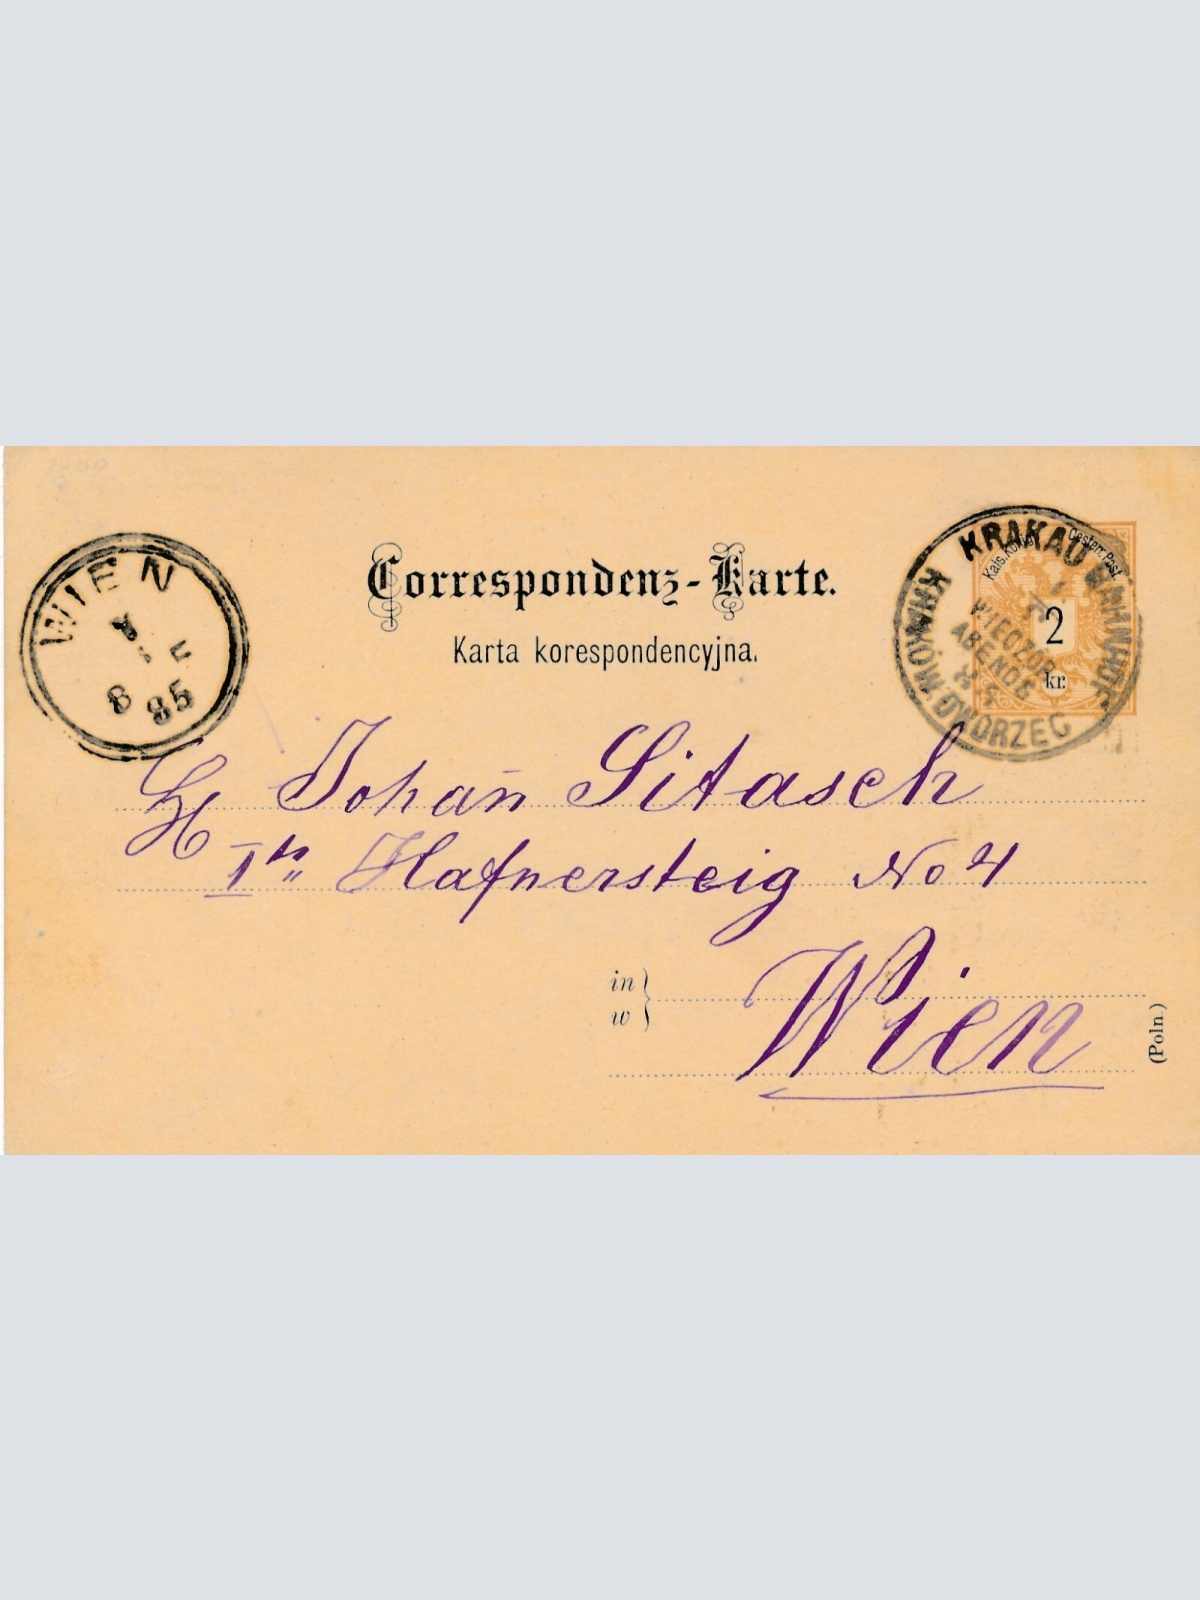 Correspondenz-Karte.
Karta korespondencyjna.
Kais. Kön. Oesterr. Post.
2
kr.
KRAKAU BAHNHOF
KRAKÓW DWORZEC
WIECZÓR
ABENDS
WIEN
8
85
H Johan̄ Sitasch
Hafnersteig No 4
in
w
Wien
(Poln.)